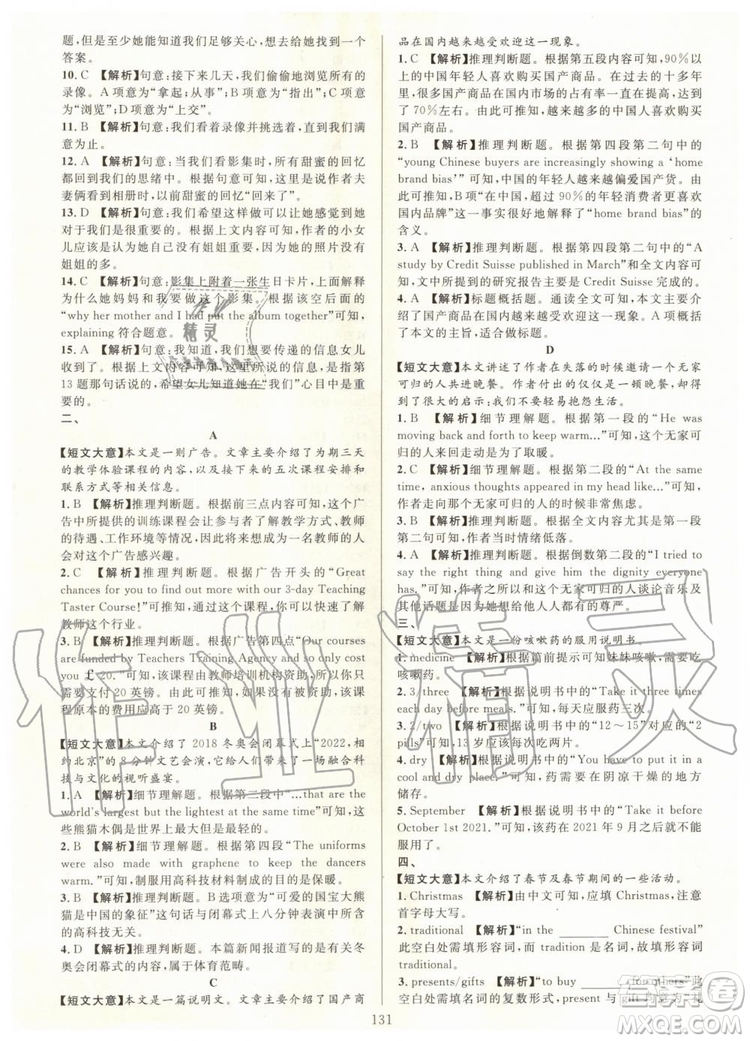 题,但是至少她能知道我们足够关心,会尝试给出一个
答案。
10. C 【解析】句意:接下来几天,我们偷偷地浏览所有
的录像。A 项意为“拿起;从事”;B 项意为“指出”;C项意
为“浏览”;D 项意为“上交”。
11. B 【解析】句意:我们看着录像并挑选着,直到我们满
意为止。
12. A 【解析】句意:当我们看影集时,所有甜蜜的回忆
都回到我们的思绪中。根据上文内容可知,这是说作者夫
妻俩看到影集时,以前甜蜜的回忆“回来了”。
13. D 【解析】句意:我们希望这样做可以让她感到她对
于我们有多重要。根据上下文内容可知,作者的小女
儿应该是认为她自己没有姐姐重要,因为照片里没有
姐姐的多。
14. C 【解析】句意:影集上附着一张生日卡片,上面解释
为什么她妈妈和我要做这个影集。根据该空后面的
“why her mother and I had put the album together”可知,
explaining 符合题意。
15. A 【解析】句意:我知道,我们想要传递的信息女儿
已经收到了。根据上下文内容可知,这里是指作者就是
第13题那句话说的,希望女儿知道她在“我们”心目中是重
要的。
二、
A
【短文大意】本文是一则广告。文章主要介绍了为期三天
的教学体验课程的内容,以及接下来的五次课程安排和
联系方式等相关信息。
1. B 【解析】推理判断题。根据前三点内容可知,这个广
告中所提供的训练课程会让参与者了解教学方式、教师
的待遇、工作环境等情况,因此一名想要成为一名教师的人
会对这个广告感兴趣。
2. C 【解析】推理判断题。根据广告开头的“Great
chances for you to find out more with our 3-day Teaching
Taster Course!”可知,通过这个课程,你可以更加了解
教师这个行业。
3. B 【解析】推理判断题。根据广告第四点“Our courses
are funded by Teachers Training Agency and only cost
you £ 20.”可知,该课程由教师培训机构资助,所以该课
程原本的费用应高于 20 英镑。
B
【短文大意】本文介绍了 2018 冬奥会闭幕式上“2022,相
约北京”的 8 分钟文艺会演,这给人们带来了一场融合科
技与文化的视听盛宴。
1. A 【解析】细节理解题。根据第三段中“...that are the
world's largest but the lightest at the same time.”可知,这
些熊猫木偶是世界上最大但同时也是最轻的。
2. C 【解析】细节理解题。根据第四段的“The uniforms
were also made with graphene to keep the dancers
warm.”可知,制服用高科技材料制成的目的是保暖。
3. B 【解析】推理判断题。B 选项的意思“可爱的国宝大熊
猫是中国的象征”这句话与闭幕式上八分钟表演中所示的
高科技无关。
4. D 【解析】推理判断题。本篇新闻报道写的是有关冬
奥会闭幕式的内容,属于体育范畴。
C
【短文大意】本文是一篇说明文。文章主要介绍了国产商
品在国内越来越受欢迎这一现象。
1. C 【解析】推理判断题。根据第五段内容可知,90%以
上的中国年轻人喜欢购买国产商品。在过去的十多年
里,更多的中国人喜欢购买国产家用电器,占比增加到
了 70%左右。由此可知,越来越多的中国人喜欢购买
国产商品。
2. B 【解析】推理判断题。根据第四段第二句中的
“young Chinese buyers are increasingly showing a ‘home
brand bias’”可知,中国的年轻人越来越偏爱国产货。由
此可知,B 项“超过 90%的年轻消费者更喜欢购买
国内品牌”这一事实很好地解释了“home brand bias”。
3. A 【解析】推理判断题。根据第四段第二句中的“A
study by Credit Suisse published in March”和全文内容可
知,文中所提到的研究报告是 Credit Suisse 完成的。
4. A 【解析】标题概括题。通读全文可知,本文主要介
绍了国产商品在国内越来越受欢迎这一现象。A 项概括
了本文的主旨,适合做标题。
D
【短文大意】本文讲述了作者在失落的时候邀请一个无家
可归的人共进晚餐。作者付出的仅仅是一顿晚餐,可收
获的却是更加乐观地生活。
1. B 【解析】细节理解题。根据第一段的“He was
moving back and forth to keep warm...”可知,这个无家可
归的人来回走动是为了取暖。
2. C 【解析】细节理解题。根据第二段的“At the same
time, anxious thoughts appeared in my head like...”可知,
作者走向无家可归的人的时候非常焦虑。
3. B 【解析】推理判断题。根据全文内容尤其是第一段
第二句可知,作者当时情绪低落。
4. A 【解析】推理判断题。根据倒数第二段的“I tried to
say the right thing and give him the dignity everyone
has.”可知,作者之所以和无家可归的人谈论音乐及
其他话题是因为想要给他每个人都有的尊严。
三、
【短文大意】本文是一份咳嗽药的服用说明书。
1. medicine 【解析】根据前面提示可知妹妹咳嗽,需要吃
咳嗽药。
2. 3/three 【解析】根据说明书中的“Take it three times
each day after meals.”可知,每天应服药三次。
3. 2/two 【解析】根据说明书中的“12～15”对应的“2
pills”可知,应服用两片。
4. dry 【解析】根据说明书中的“You have to put it in a
cool and dry place.”可知,药需要在阴凉干燥的地方
储存。
5. September 【解析】根据说明书中的“Take it before
October 1st 2021.”可知,该药在 2021 年 9 月之后就不能
服用了。
四、
【短文大意】本文介绍了春节及春节期间的一些活动。
1. Christmas 【解析】由中文可知,应填 Christmas,注意
首字母大写。
2. traditional 【解析】“in the ______ Chinese festival”
此空白处需填形容词,而 tradition 是名词,故填形容词
traditional。
3. presents/gifts 【解析】“to buy ______ for others”此
空白处需填名词的复数形式,present 与 gift 均为可数
131